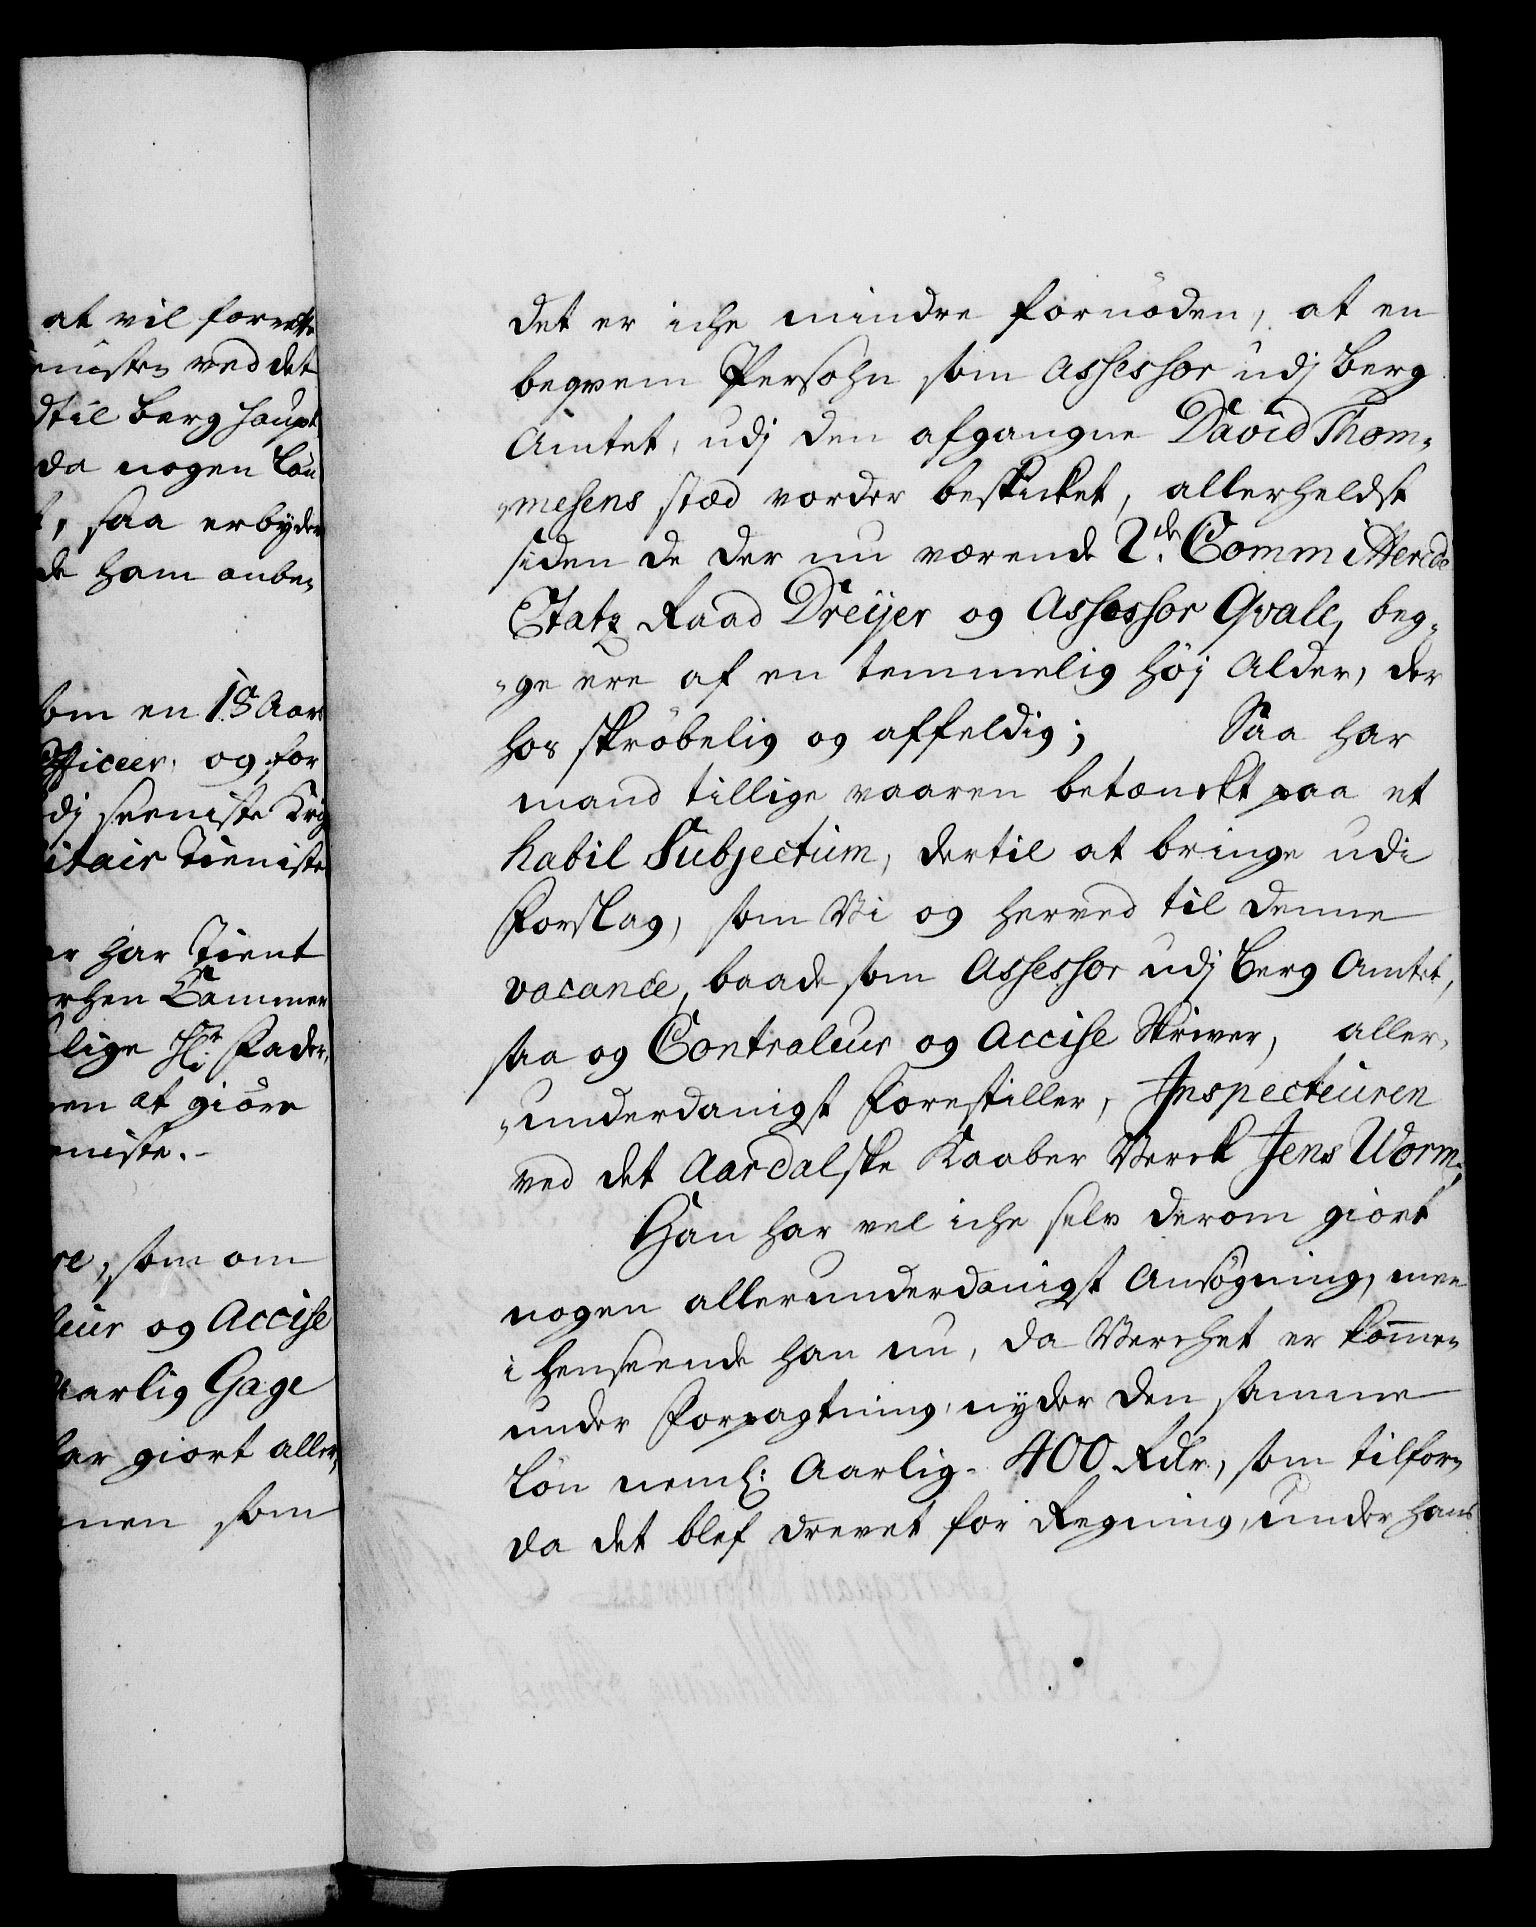 at vil forrette
enisten ved det
dtil Berg Haupt
da nogen Løn
t, saa erbyder
de ham anbe„
som en 18 Aars
Officeer, og for
dj seeniste Krig
litair Tieniste
er har Tient
rhen Cammer
lige Hr. Fader,
en at giøre
eniste.–
re, som om
leur og Accise
aarlig Gage
har giort aller„
men som
Det er iche mindre fornöden, at en
beqvem Persohn som Assessor udj Berg
Amtet, udj den afgangne David Thom„
„mesens stæd vorder beskicket, allerheldst
siden de der nu værende 2de. Committerede
Etatz Raad Dreÿer og Assessor Qvale, beg„
„ge ere af en temmelig høj Alder, der
hos skröbelig og affeldig; Saa har
mand tillige vaaren betænckt paa et
habil Subjectum, dertil at bringe udi
Forslag, som Vi og herved til denne
vacance, baade som Assessor udj Berg Amtet,
saa og Contraleur og Accise Skriver, aller„
„underdanigst forestiller, Inspecteuren
ved det Aardalske Kaaber Werck Jens Worm;
Han har vel iche selv derom giort
nogen allerunderdanigst Ansögning, men
i henseende han nu, da Werchet er kom̄en
under Forpagtning, nyder den samme
Løn neml: Aarlig- 400 Rdlr., som tilforn
da det blef drevet for Regning, under hans